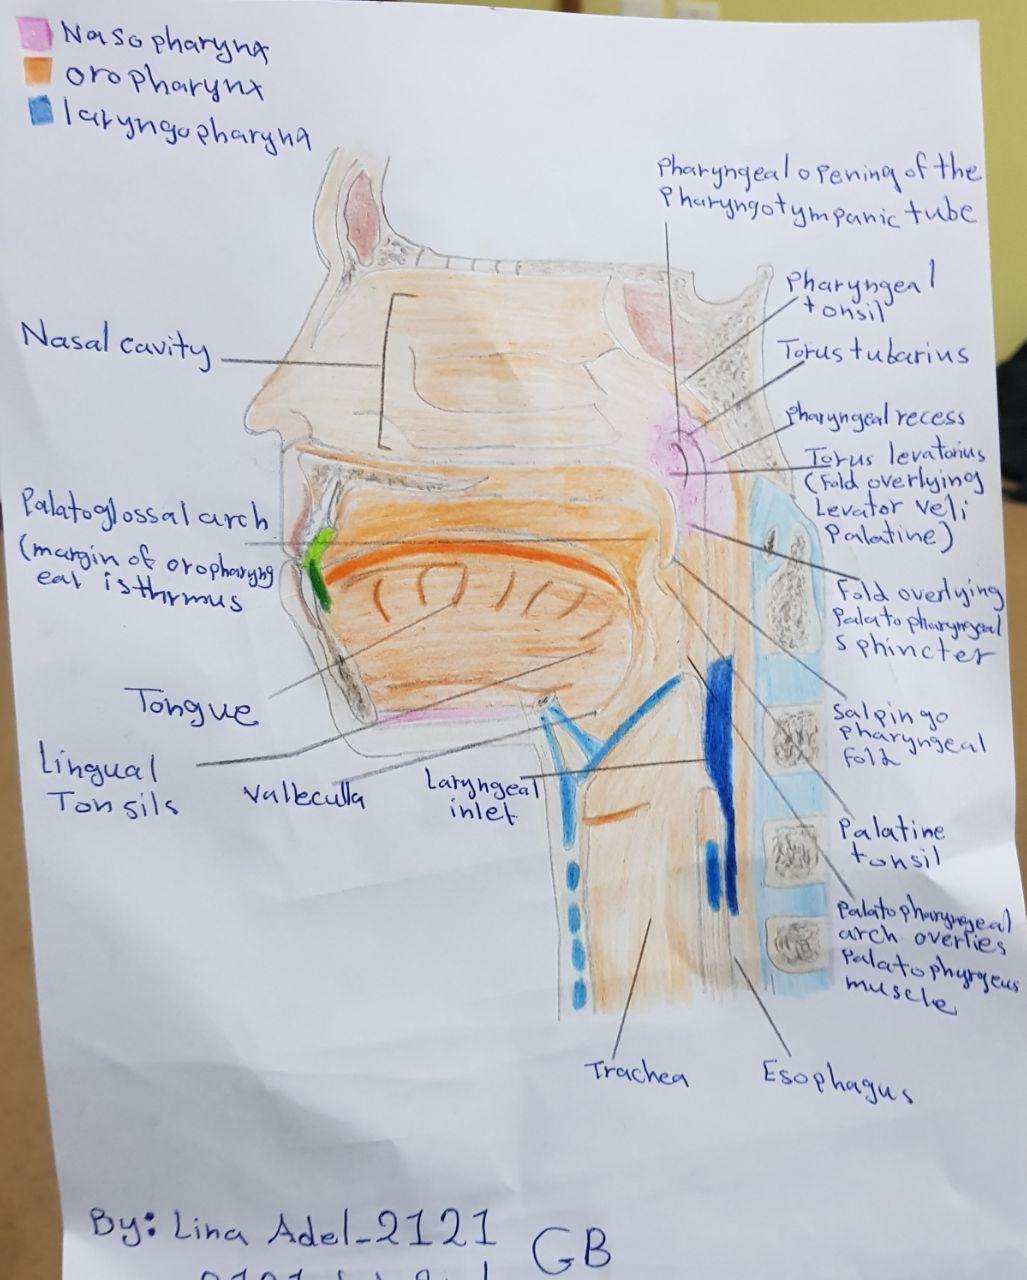 Nasopharynx
oropharynx
laryngopharynx
Pharyngeal opening of the
Pharyngotympanic tube
Pharyngeal
tonsil
Torus tubarius
Pharyngeal recess
Torus levatorius
(Fold overlying
Levator veli
Palatine)
Fold overlying
Palatopharyngeal
sphincter
Salpingo
pharyngeal
Fold
Palatine
tonsil
Palatopharyngeal
arch overlies
Palatophyrgeus
muscle
Nasal cavity
Palatoglossal arch
(margin of oropharyng
eal isthmus
Tongue
Lingual
Tonsils
Vallecula
Laryngeal
inlet
Trachea
Esophagus
By: Lina Adel_2121
GB